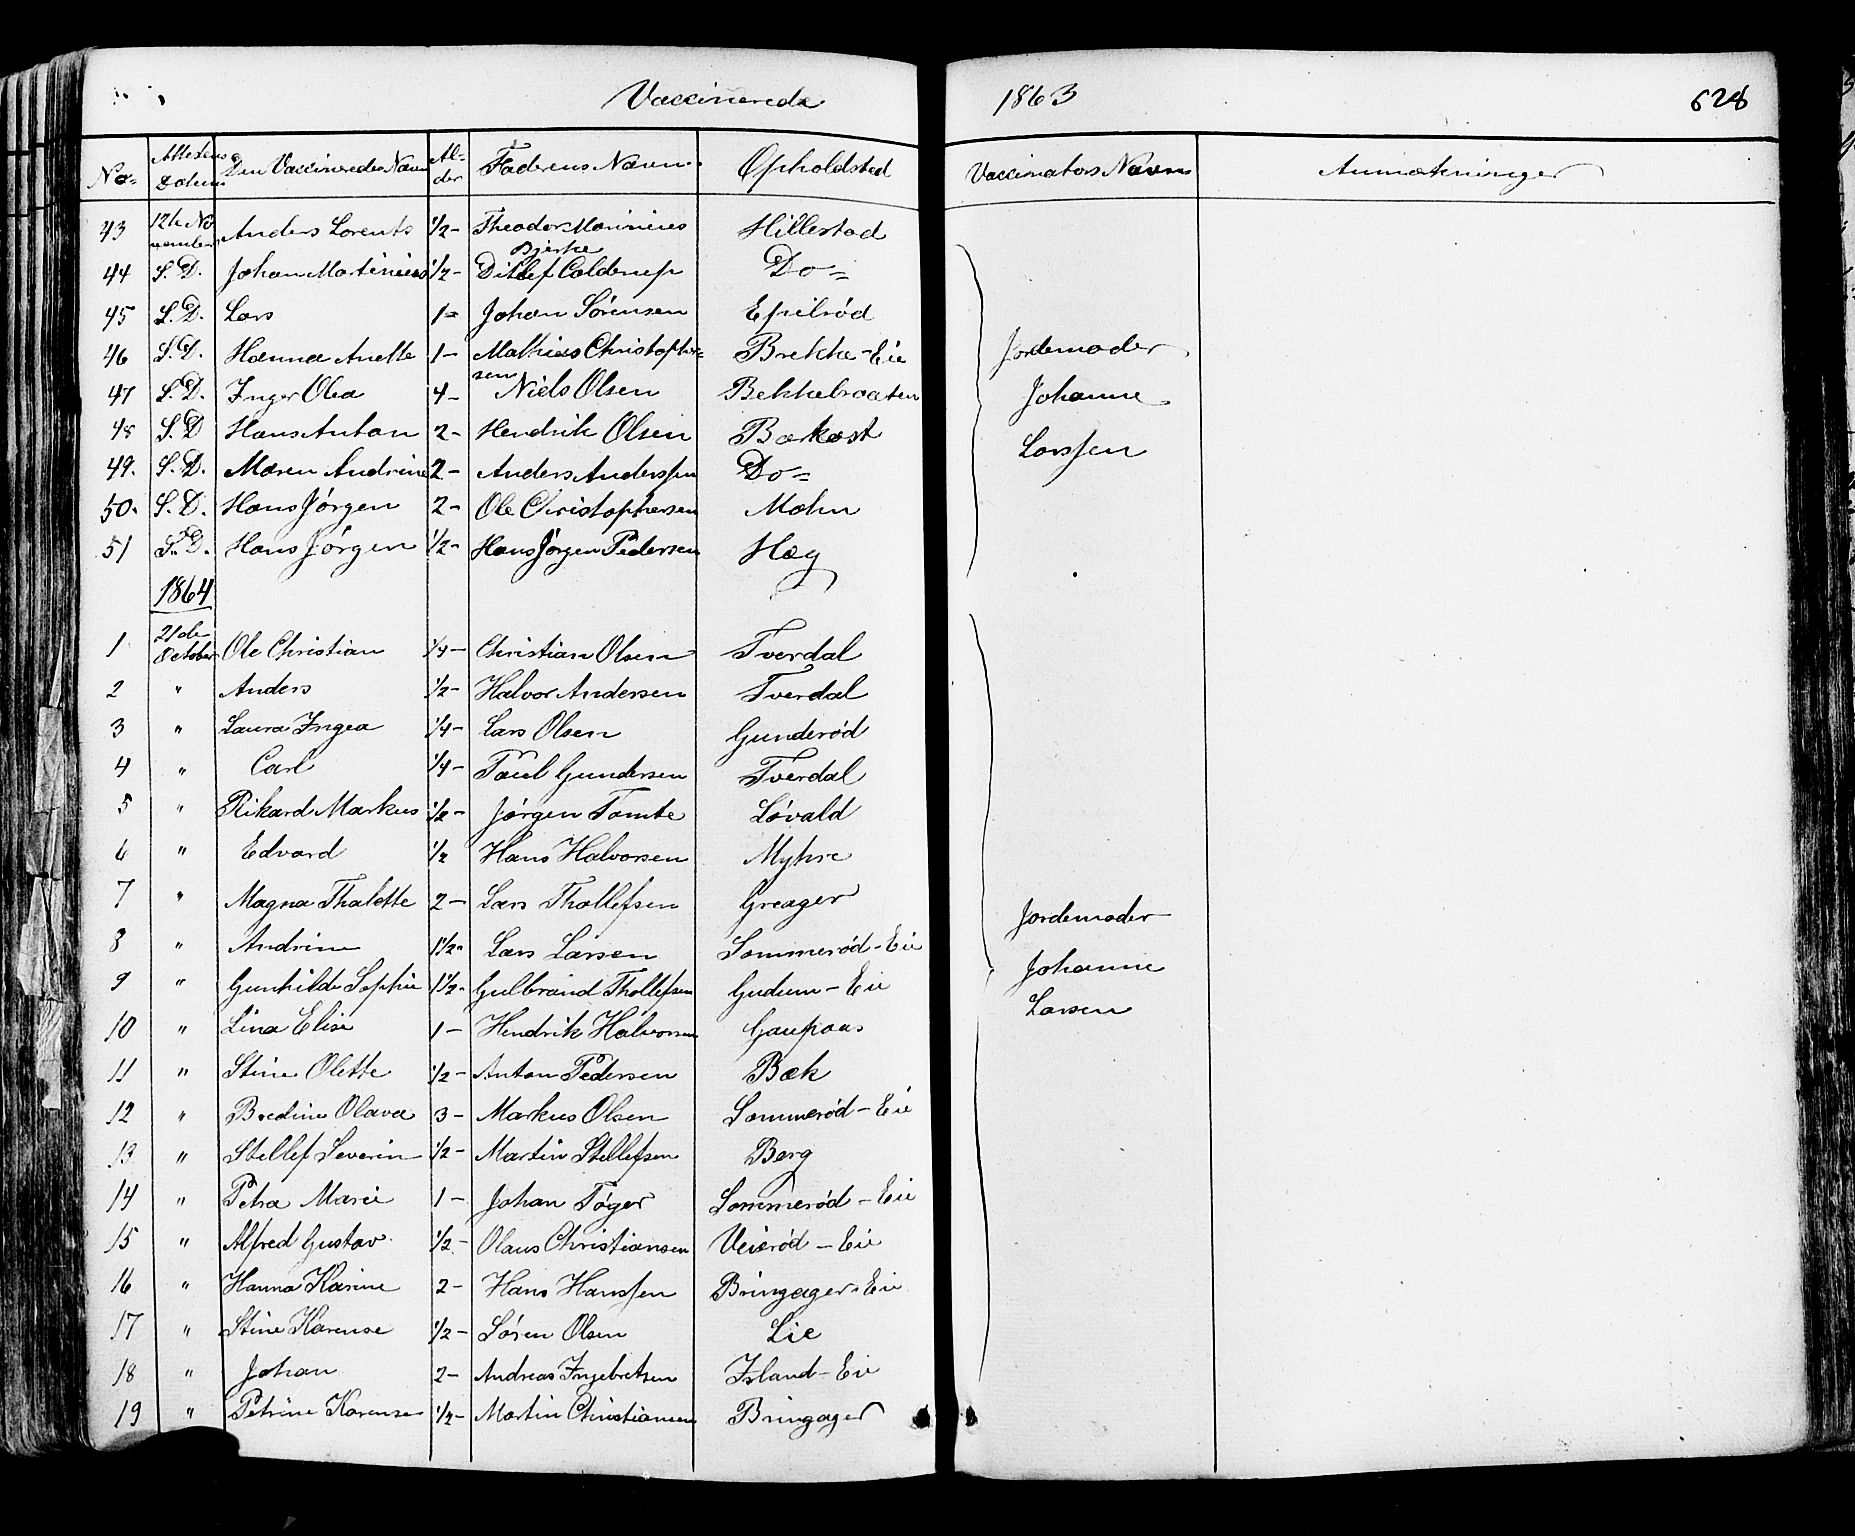 Vaccinerede 1863 628
No Attestens Datum Den Vaccineredes Navn Alder Faderens Navn Opholdsted Vaccinators Navn Anmærkninger
43 12te November Anders Lorents 1/2 - Theodor Marinius Bjerke Hillestad
44 S. D. Johan Martinius 1/2 - Ditlef Colderup Do =
45 S. D. Lars 1 = Johan Sørensen
46 S. D. Hanna Anette 1 - Mathias Christophersen Brekke - Eie Jordemoder
47 S. D. Inger Olea 4 - Niels Olsen Bekkebraaten Johanne
48 S. D Hans Anton 2 - Hendrik Olsen Bærkøst Larssen
49. S. D. Maren Andrine 2 - Anders Anderssen Do =
50. S. D. Hans Jørgen 2 - Ole Christophersen Mohn
51 S. D. Hans Jørgen 1/2 - Hans Jørgen Pedersen Hæg
1864
1 21de October Ole Christian 1/4 - Christian Olsen Tverdal
2 " Anders 1/2 - Halvor Andersen Tverdal
3 " Laura Ingea 1/4 - Lars Olsen Gunderød
4 " Carl 1/4 - Paul Gundersen Tverdal
5 " Rikard Markus 1/2 - Jørgen Tomte Løvald
6 " Edvard 1/2 Hans Halvorsen Myhre
7 " Magna Thalette 2 - Lars Thollefsen Greager Jordemoder
8 " Andrine 1 1/2 " Lars Larsen Sommerød - Eie
9 " Gunhilde Sophie 1 1/2 - Gulbrand Thollefsen Gudum - Eie Johanne
10 " Lina Elise 1 - Hendrik Halvorsen Gaupaas Larsen
11 " Stine Olette 1/2 - Anton Pedersen Bæk
12 " Bredine Olava 3 - Markus Olsen Sommerød - Eie
13 " Stellef Severin 1/2 - Martin Stellefsen Berg
14 " Petra Marie 1 - Johan Tøger Sommerød - Eie
15 " Alfred Gustav 1/2 - Olaus Christiansen Veierød - Eie
16 " Hanna Karine 2 - Hans Hanssen Bringager - Eie
17 " Stine Karense 1/2 - Søren Olsen Lie
18 " Johan 2 - Andreas Ingebretsen Island - Eie
19 " Petrine Karense 1/2 - Martin Christiansen Bringager